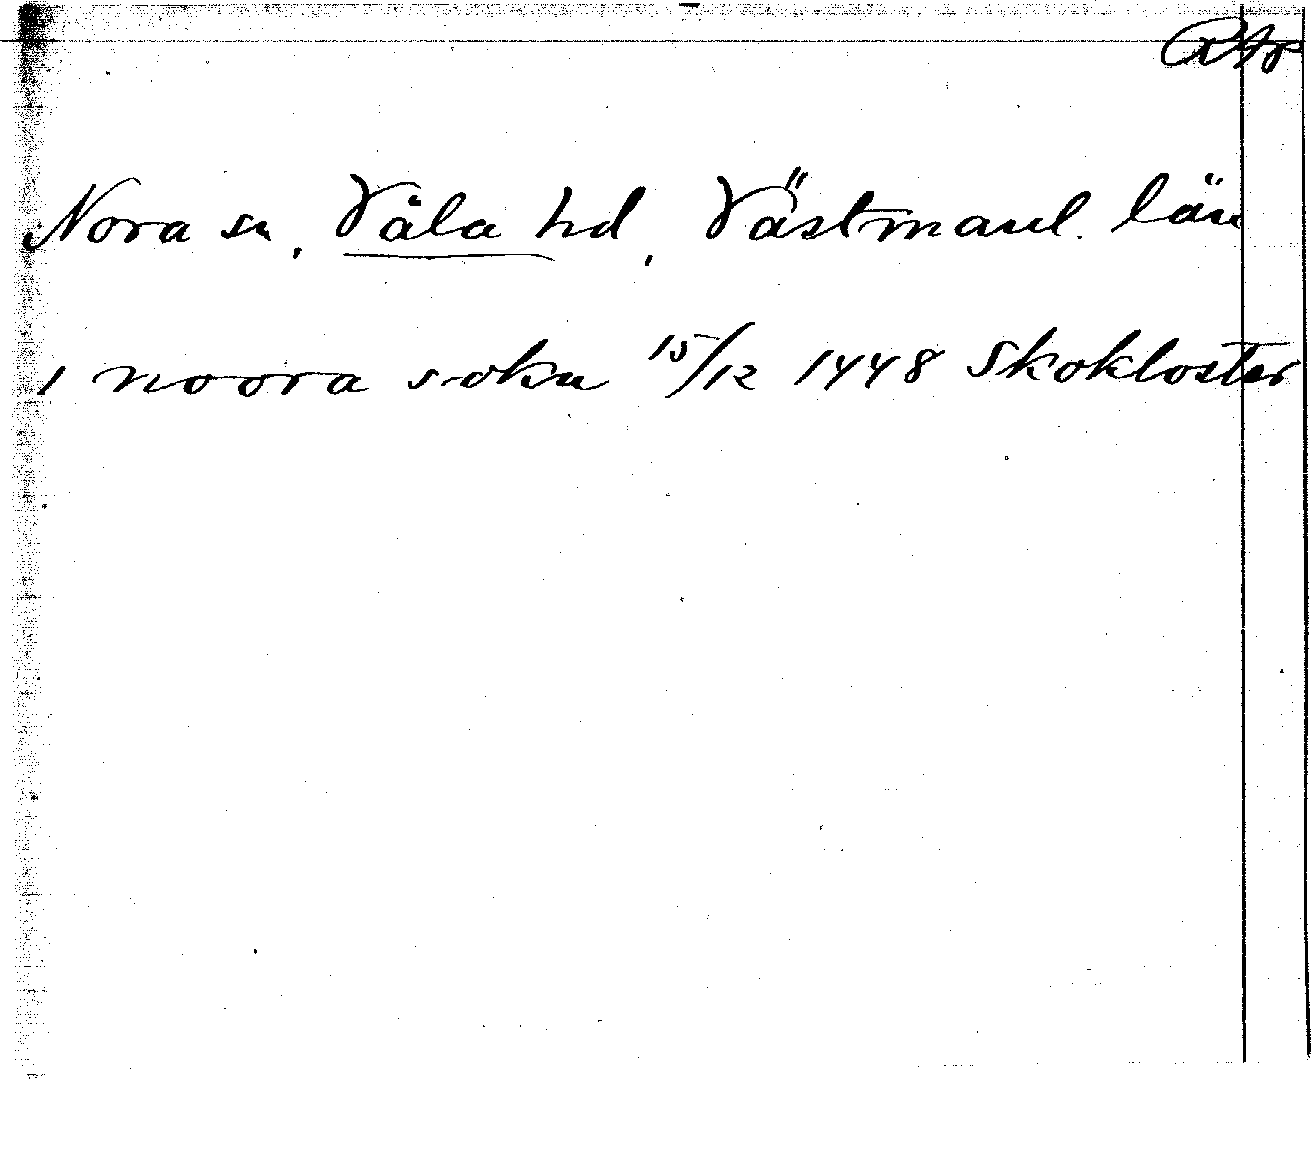 RAp
Nora sn, Våla hd, Västmanl. län
i noora sokn 15/12 1448 Skokloster